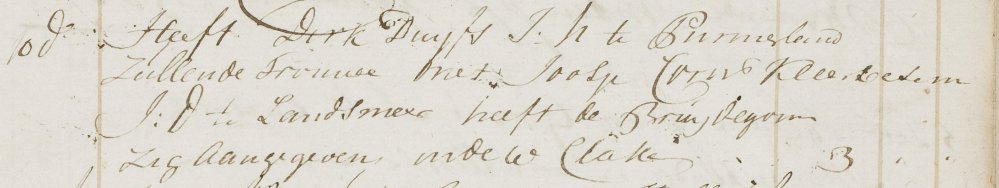 po do Heeft Dirk Duyfs J: h te Purmerland
Zullende Trouwe met Joosje Corns Kleerbesem
J: D te Landsmeer heeft de Bruydegom
Zig Aangegeven, inde 4e Classe . . 3 . .